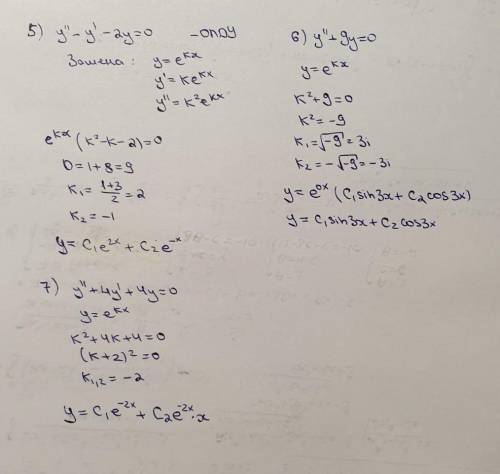 5) y'' - y' - 2y = 0 - ОЛДУ
Замена: y = e^{kx}
y' = ke^{kx}
y'' = k²e^{kx}
e^{kx}(k² - k - 2) = 0
D = 1 + 8 = 9
k₁ = \frac{1+3}{2} = 2
k₂ = -1
y = C₁e^{2x} + C₂e^{-x}
6) y'' + 9y = 0
y = e^{kx}
k² + 9 = 0
k² = -9
k₁ = √-9 = 3i
k₂ = -√-9 = -3i
y = e^{0x}(C₁sin3x + C₂cos3x)
y = C₁sin3x + C₂cos3x
7) y'' + 4y' + 4y = 0
y = e^{kx}
k² + 4k + 4 = 0
(k + 2)² = 0
k₁,₂ = -2
y = C₁e^{-2x} + C₂e^{-2x}·x